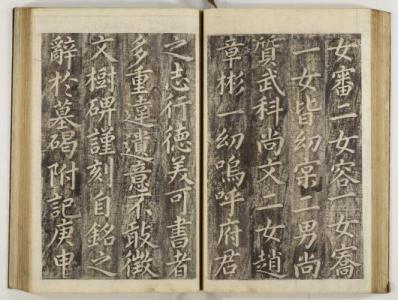 女審二女容一女喬
一女皆幼宗二男尚
質武科尚文一女趙
章彬一幼嗚呼府君
之志行德美可書者
多重違遺意不敢徵
文樹碑謹刻自銘之
辭於墓碣附記庚申